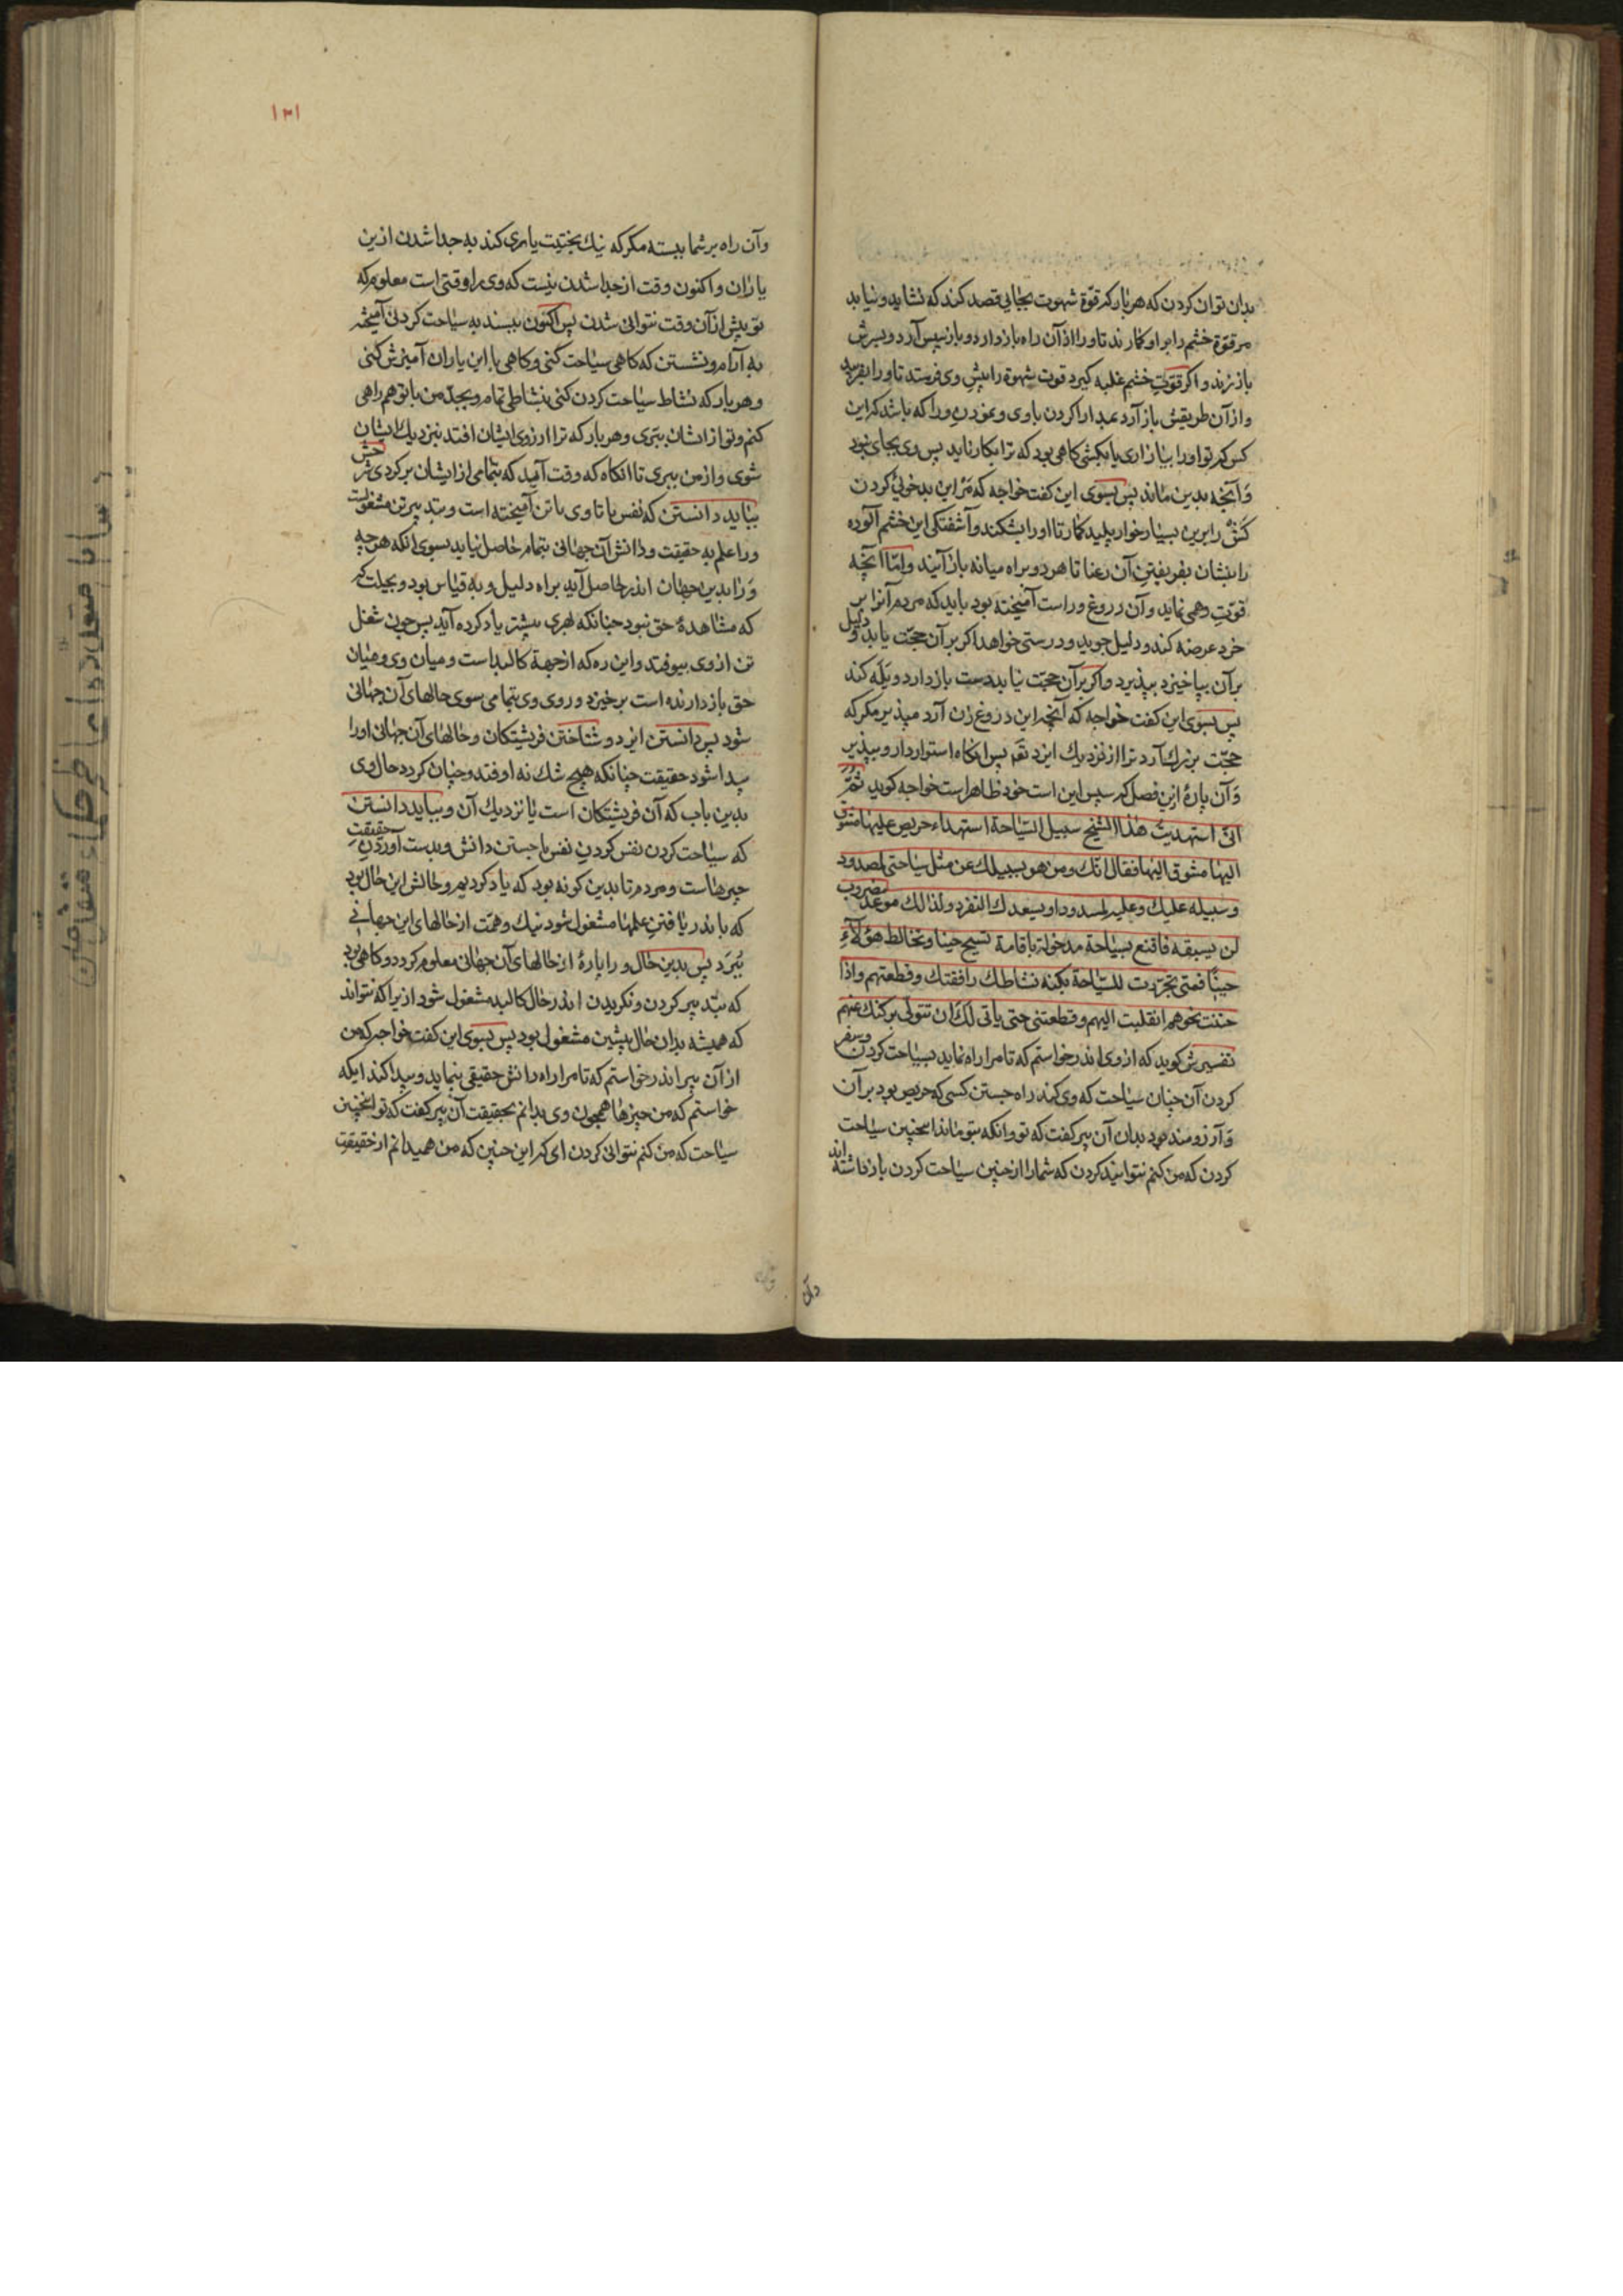 بدان توان کردن که هر بار که قوّة شهوت بجایی قصد کند که نشاید و نیاید
مر قوّة خشم را بر او کمارند تا ورا از آن راه باز دارد و باز سپس آرد و بسرش
باز زند و اکر قوّتِ خشم غلبه کیرد قوت شهوة را بپش وی فرستد تا ورا بفریبد
و از آن طریقش باز آرد بمدارا کردن با وی و بنمودن ورا که باشد که این
کس که تو اورا بیازاری یا بکشی کاهی بود که ترا بکار آید پس وی بجای بود
وَ آنچه بدین ماند پس بسوی این کفت خواجه که مَر این بدخوئی کردن
کَش را برین بسیار خوار پلید کمار تا اورا بشکند و آشفتکی این خشم آلوده
را بنشان بفریفتن آن رعنا تا هر دو براه میانه باز آیند و امّا آنچه
قوّتِ وهمی نماید و آن دروغ و راست آمیخته بود باید که مردم آنرا بر
خرد عرضه کند و دلیل جوید و درستی خواهد اکر بر آن حجّت یابد و دلیل
بر آن بپا خیزد بپذیرد و اکر بر آن حجّت نیابد دست باز دارد و یَله کند
پس بسوی این کفت خواجه که آنچه این دروغ زن آرد مپذیر مکر که
حجّت بزرك آرد ترا از نزدیك ایزد تعَ پس انکاه استوار دار و بپذیر
وَ آن پارهٔ ازین فصل که سپس این است خود ظاهر است خواجه کوید ثُمَّ
انّی استهدیتُ هٰذا الشیخ سبیل السّیاحة استهداء حریص علیها متشوّق
الیها مشوق الیها فقال انّك و من هو بسبیلك عن مثل سیاحتی لمصدود
و سبیله علیك و علیه لمسدود او یسعدك التفرد و لذٰلك موعد مضروب
لن یسبقه فاقنع بسیاحة مدخولة باقامة تسیح حینا و تخالط هؤلآءِ
حیناً فمتی تجرّدت للسّیاحة بکنه نشاطك رافقتك و قطعتهم و اذا
حننت نحوهم انقلبت الیهم و قطعتنی حتی یاتی لك ان تتولّی برکنك عنهم
تفسیرش کوید که از وی اندر خواستم که تا مرا راه نماید بسیاحت کردن و سفر
کردن آن چنان سیاحت که وی کند راه جستن کسی که حریص بود بر آن
وَ آرزومند بود بدان آن پیر کفت که تو و انکه بتو ماند اینچنین سیاحت
کردن که من کنم نتوانید کردن که شما را از چنین سیاحت کردن باز داشته اند
وآن
۱۳۱
وآن راه بر شما ببسته مکر که نیك بختیت یاری کند به جدا شدن ازین
یاران و اکنون وقت از جدا شدن نیست که وی را وقتی است معلوم که
تو پیش از آن وقت نتوانی شدن پس اکنون ببسند به سیاحت کردنی آمیخته
به آرام و نشستن که کاهی سیاحت کنی و کاهی با این یاران آمیزش کنی
و هر بار که نشاط سیاحت کردن کنی بنشاطی تمام و بجدّ من با تو همراهی
کنم و تو از ایشان ببّری و هر بار که ترا آرزوی ایشان افتد بنزدیك ایشان
شوی و از من ببری تا انکاه که وقت آمید که بتمامی از ایشان برکردی
بباید دانستن که نفس ما تا وی با تن آمیخته است و بتدبیر تن مشغولست
ورا علم به حقیقت و دانش آن جهانی بتمام حاصل نیاید بسوی آنکه هر چه
وَرا بدین جهان اندر حاصل آید براه دلیل و به قیاس بود و بحیلت
که مشاهدهٔ حق نبود چنانکه لهری بیشتر یاد کرده آید پس چون شغل
تن از وی بیوفتد و این ره که از جهة کالبد است و میان وی و میان
حق باز دارنده است برخیزد و روی وی بتمامی سوی حالهای آن جهانی
شود پس دانستن ایزد و شناختن فریشتکان و حالهٰای آن جهانی اورا
پیدا شود حقیقت چنانکه هیچ شك نه اوفتد و چنان کردد حال وی
بدین باب که آن فریشتکان است یا نزدیك آن و بباید دانستن
که سیاحت کردن نفس کردن نفس ما جستن دانش و بدست آوردن حقیقت
چیزهاست و مردم تا بدین کونه بود که یاد کردیم و حالش این حال بود
که باندر یافتن علمها مشغول شود نیك و همّت از حالهای این جهانی
بُبَرد پس بدین حال ورا پارهٔ از حالهای آن جهانی معلوم کردد و کاهی بود
که بتدبیر کردن و نکریدن اندر حال کالبد مشغول شود ازیرا که نتواند
که همیشه بدان حال پیشین مشغول بود پس بسوی این کفت خواجه که من
از آن پیر اندر خواستم که تا مرا راه دانش حقیقی بنماید و پیدا کند ایکه
خواستم که من چیزها همچون وی بدانم بحقیقت آن پیر کفت که تو اینچنین
سیاحت که من کنم نتوانی کردن ای که این چنین که من همیدانم از حقیقتِ